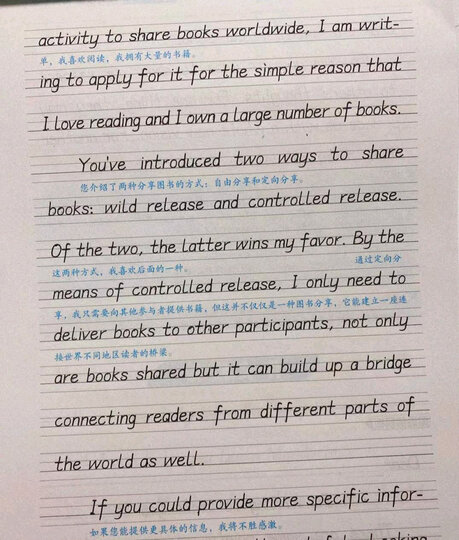 activity to share books worldwide, I am writ-
单，我喜欢阅读，我拥有大量的书籍。
ing to apply for it for the simple reason that
I love reading and I own a large number of books.
You've introduced two ways to share
您介绍了两种分享图书的方式：自由分享和定向分享。
books: wild release and controlled release.
Of the two, the latter wins my favor. By the
这两种方式，我喜欢后面的一种。 通过定向分
means of controlled release, I only need to
享，我只需要向其他参与者提供书籍，但这并不仅仅是一种图书分享，它能建立一座连
deliver books to other participants, not only
接世界不同地区读者的桥梁。
are books shared but it can build up a bridge
connecting readers from different parts of
the world as well.
If you could provide more specific infor-
如果您能提供更具体的信息，我将不胜感激。